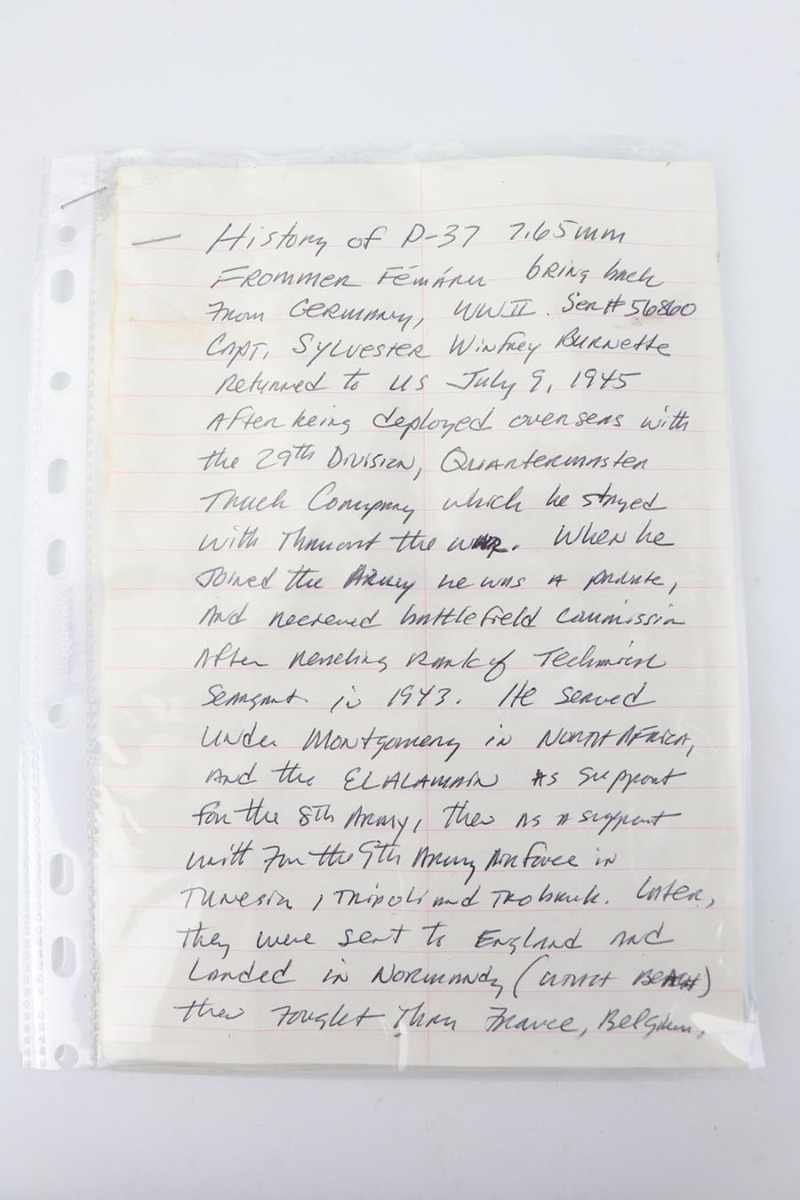 — History of P-37 7.65mm
Frommer Fémáru bring back
From Germany, WWII. Ser# 56860
Capt. Sylvester Winfrey Burnette
returned to US July 9, 1945
After being deployed overseas with
the 29th Division, Quartermaster
Truck Company which he stayed
with Thruout the war. When he
Joined the Army he was a private,
And received battlefield commission
After reaching rank of Technical
Sergeant in 1943. He served
under Montgomery in North Africa,
And the ELALAMAIN as support
for the 8th Army, then as a support
unit For the 9th Army Air Force in
Tunesia, Tripoli and Trobruk. Later,
they were sent to England and
Landed in Normandy ( Beach)
then Fought Thru France, Belgium,